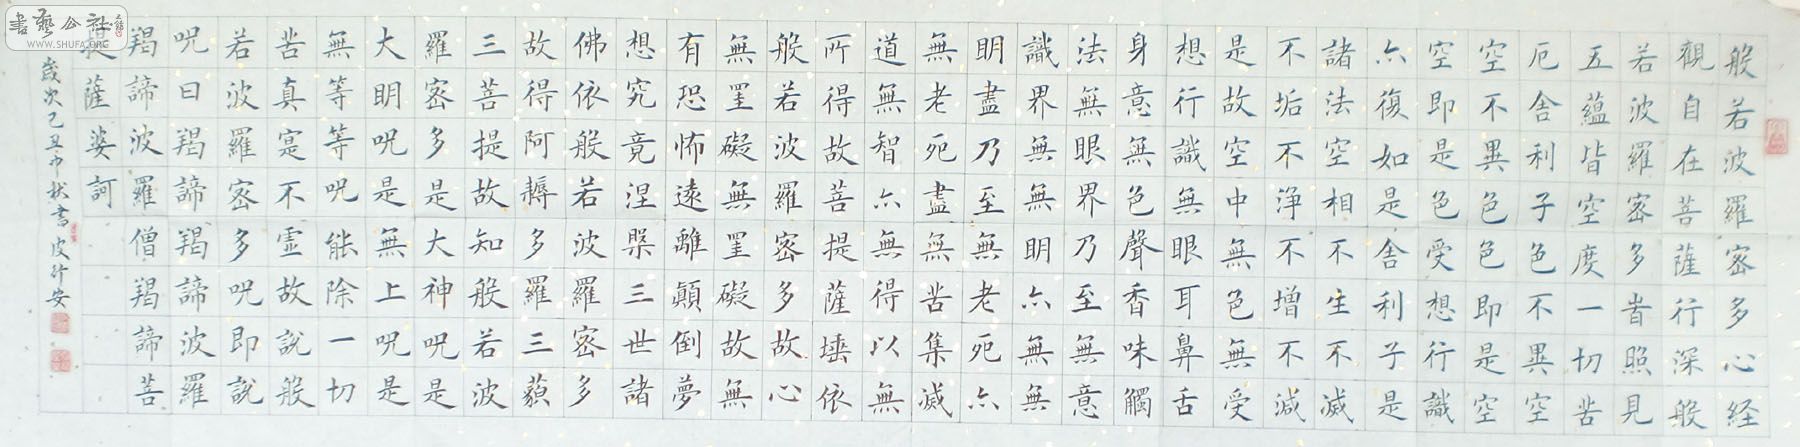 般若波羅密多心経
觀自在菩薩行深般
若波羅密多旹照見
五蘊皆空度一切苦
厄舍利子色不異空
空不異色色即是空
空即是色受想行識
亦復如是舍利子是
諸法空相不生不滅
不垢不淨不增不減
是故空中無色無受
想行識無眼耳鼻舌
身意無色聲香味觸
法無眼界乃至無意
識界無無明亦無無
明盡乃至無老死亦
無老死盡無苦集滅
道無智亦無得以無
所得故菩提薩埵依
般若波羅密多故心
無罣礙無罣礙故無
有恐怖遠離顛倒夢
想究竟涅槃三世諸
佛依般若波羅密多
故得阿耨多羅三藐
三菩提故知般若波
羅密多是大神咒是
大明咒是無上咒是
無等等咒能除一切
苦真寔不虛故說般
若波羅密多咒即說
咒曰羯諦羯諦波羅
羯諦波羅僧羯諦菩
提薩婆訶
歲次己丑中秋書 皮行安
書藝公社
WWW.SHUFA.ORG